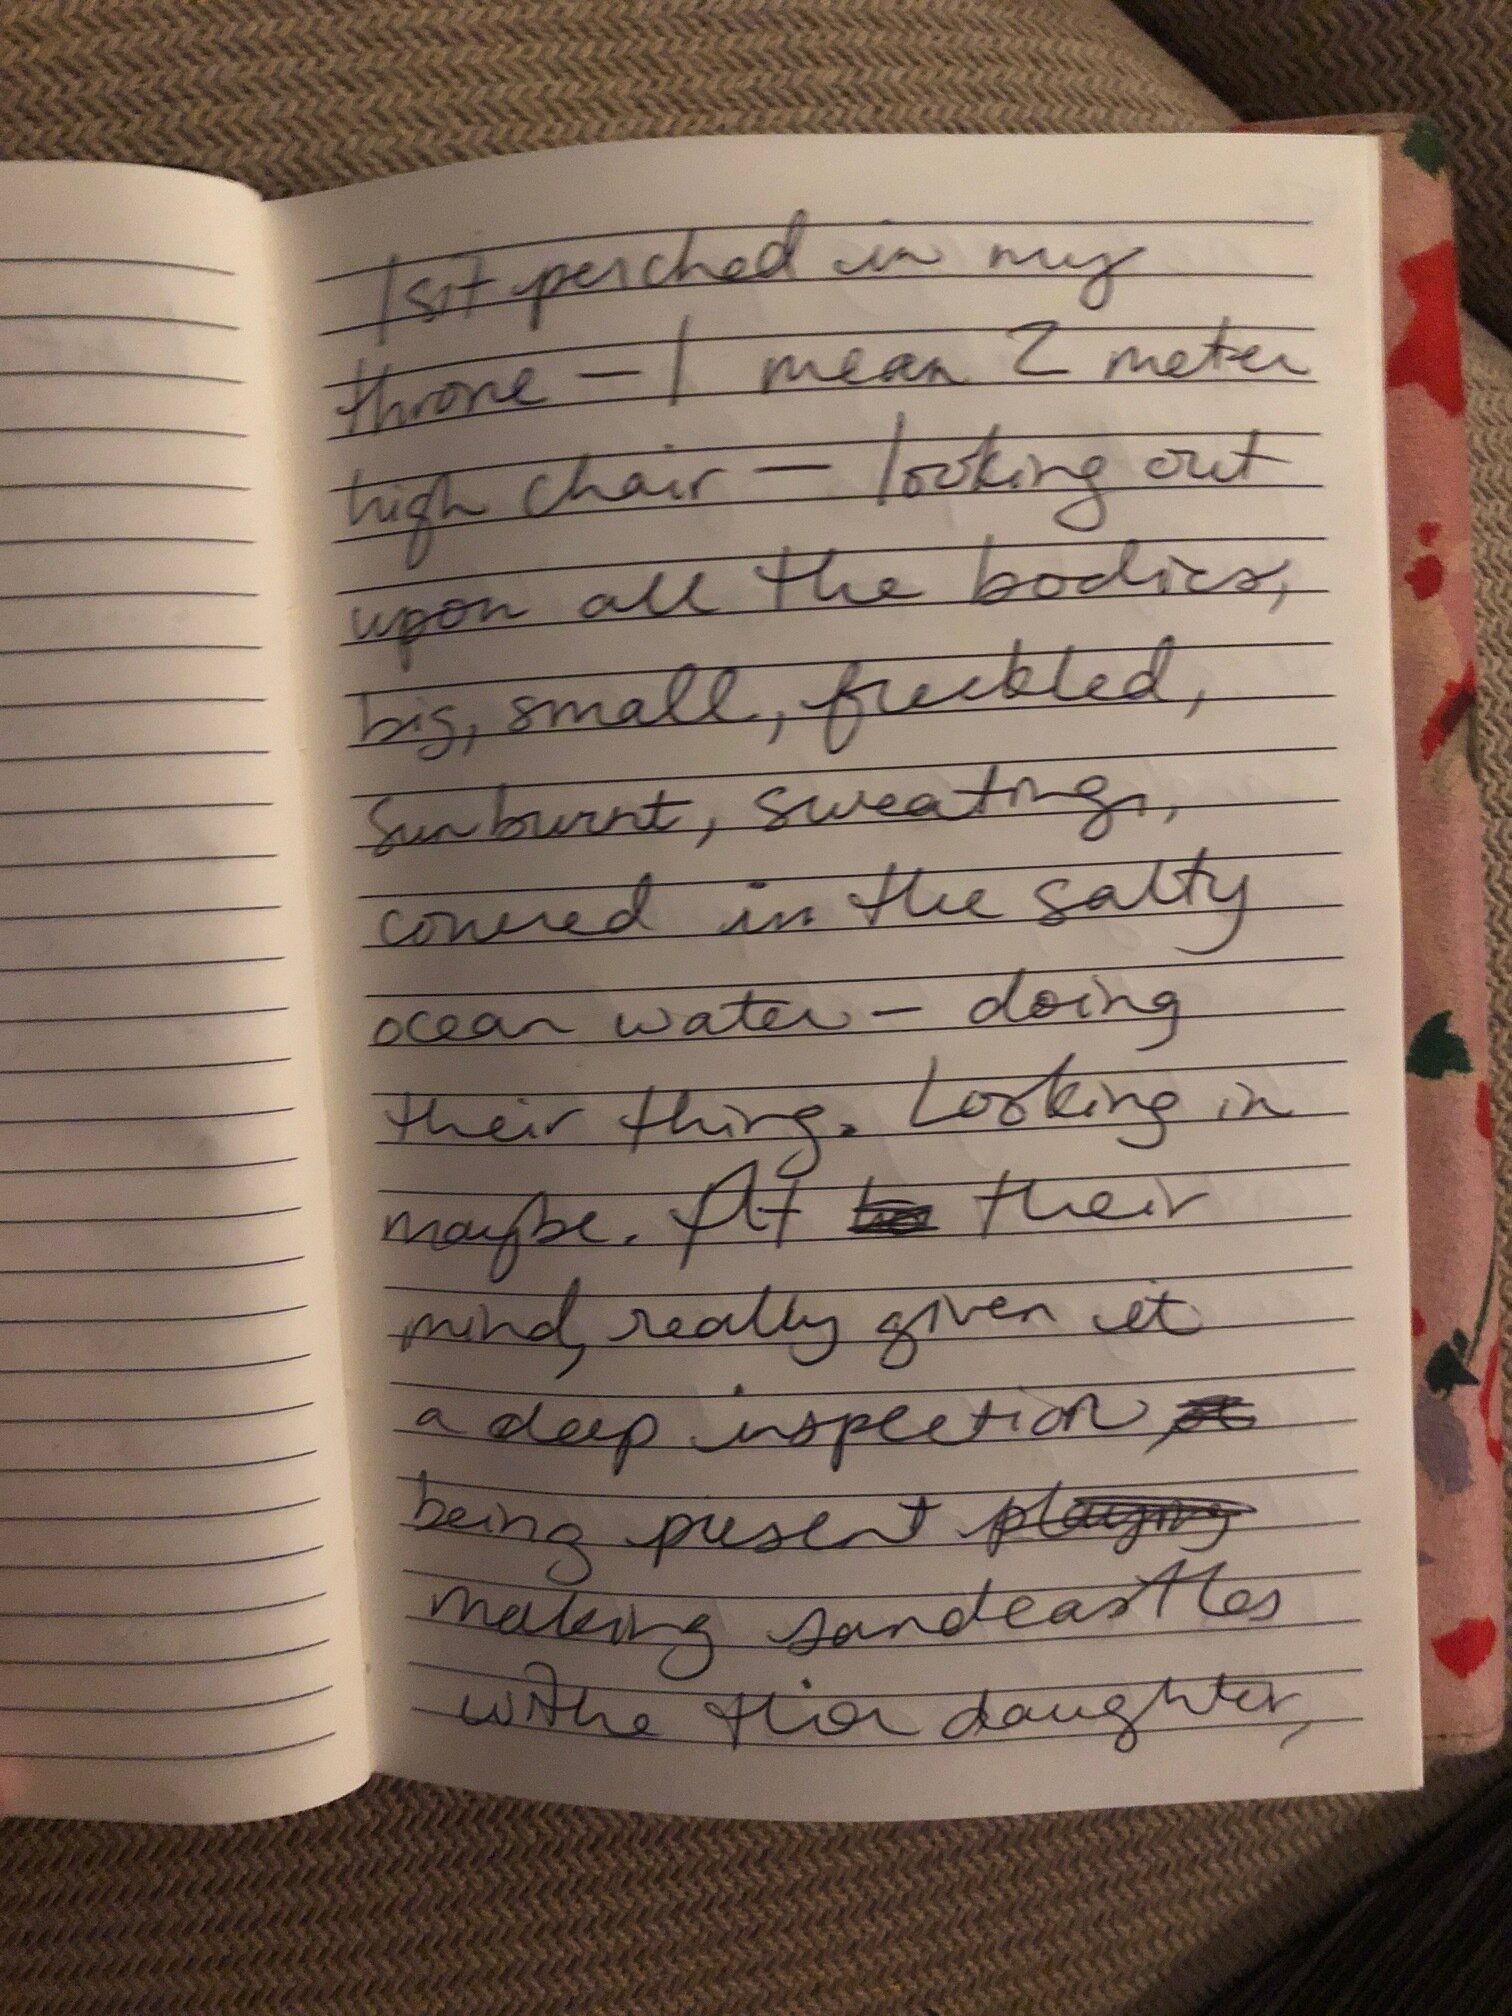 I sit perched in my
throne - I mean 2 meter
high chair - looking out
upon all the bodies,
big, small, freckled,
sunburnt, sweating,
covered in the salty
ocean water - doing
their thing. Looking in
maybe. At their
mind, really given it
a deep inspection
being present playing
making sandcastles
withe thier daughter,